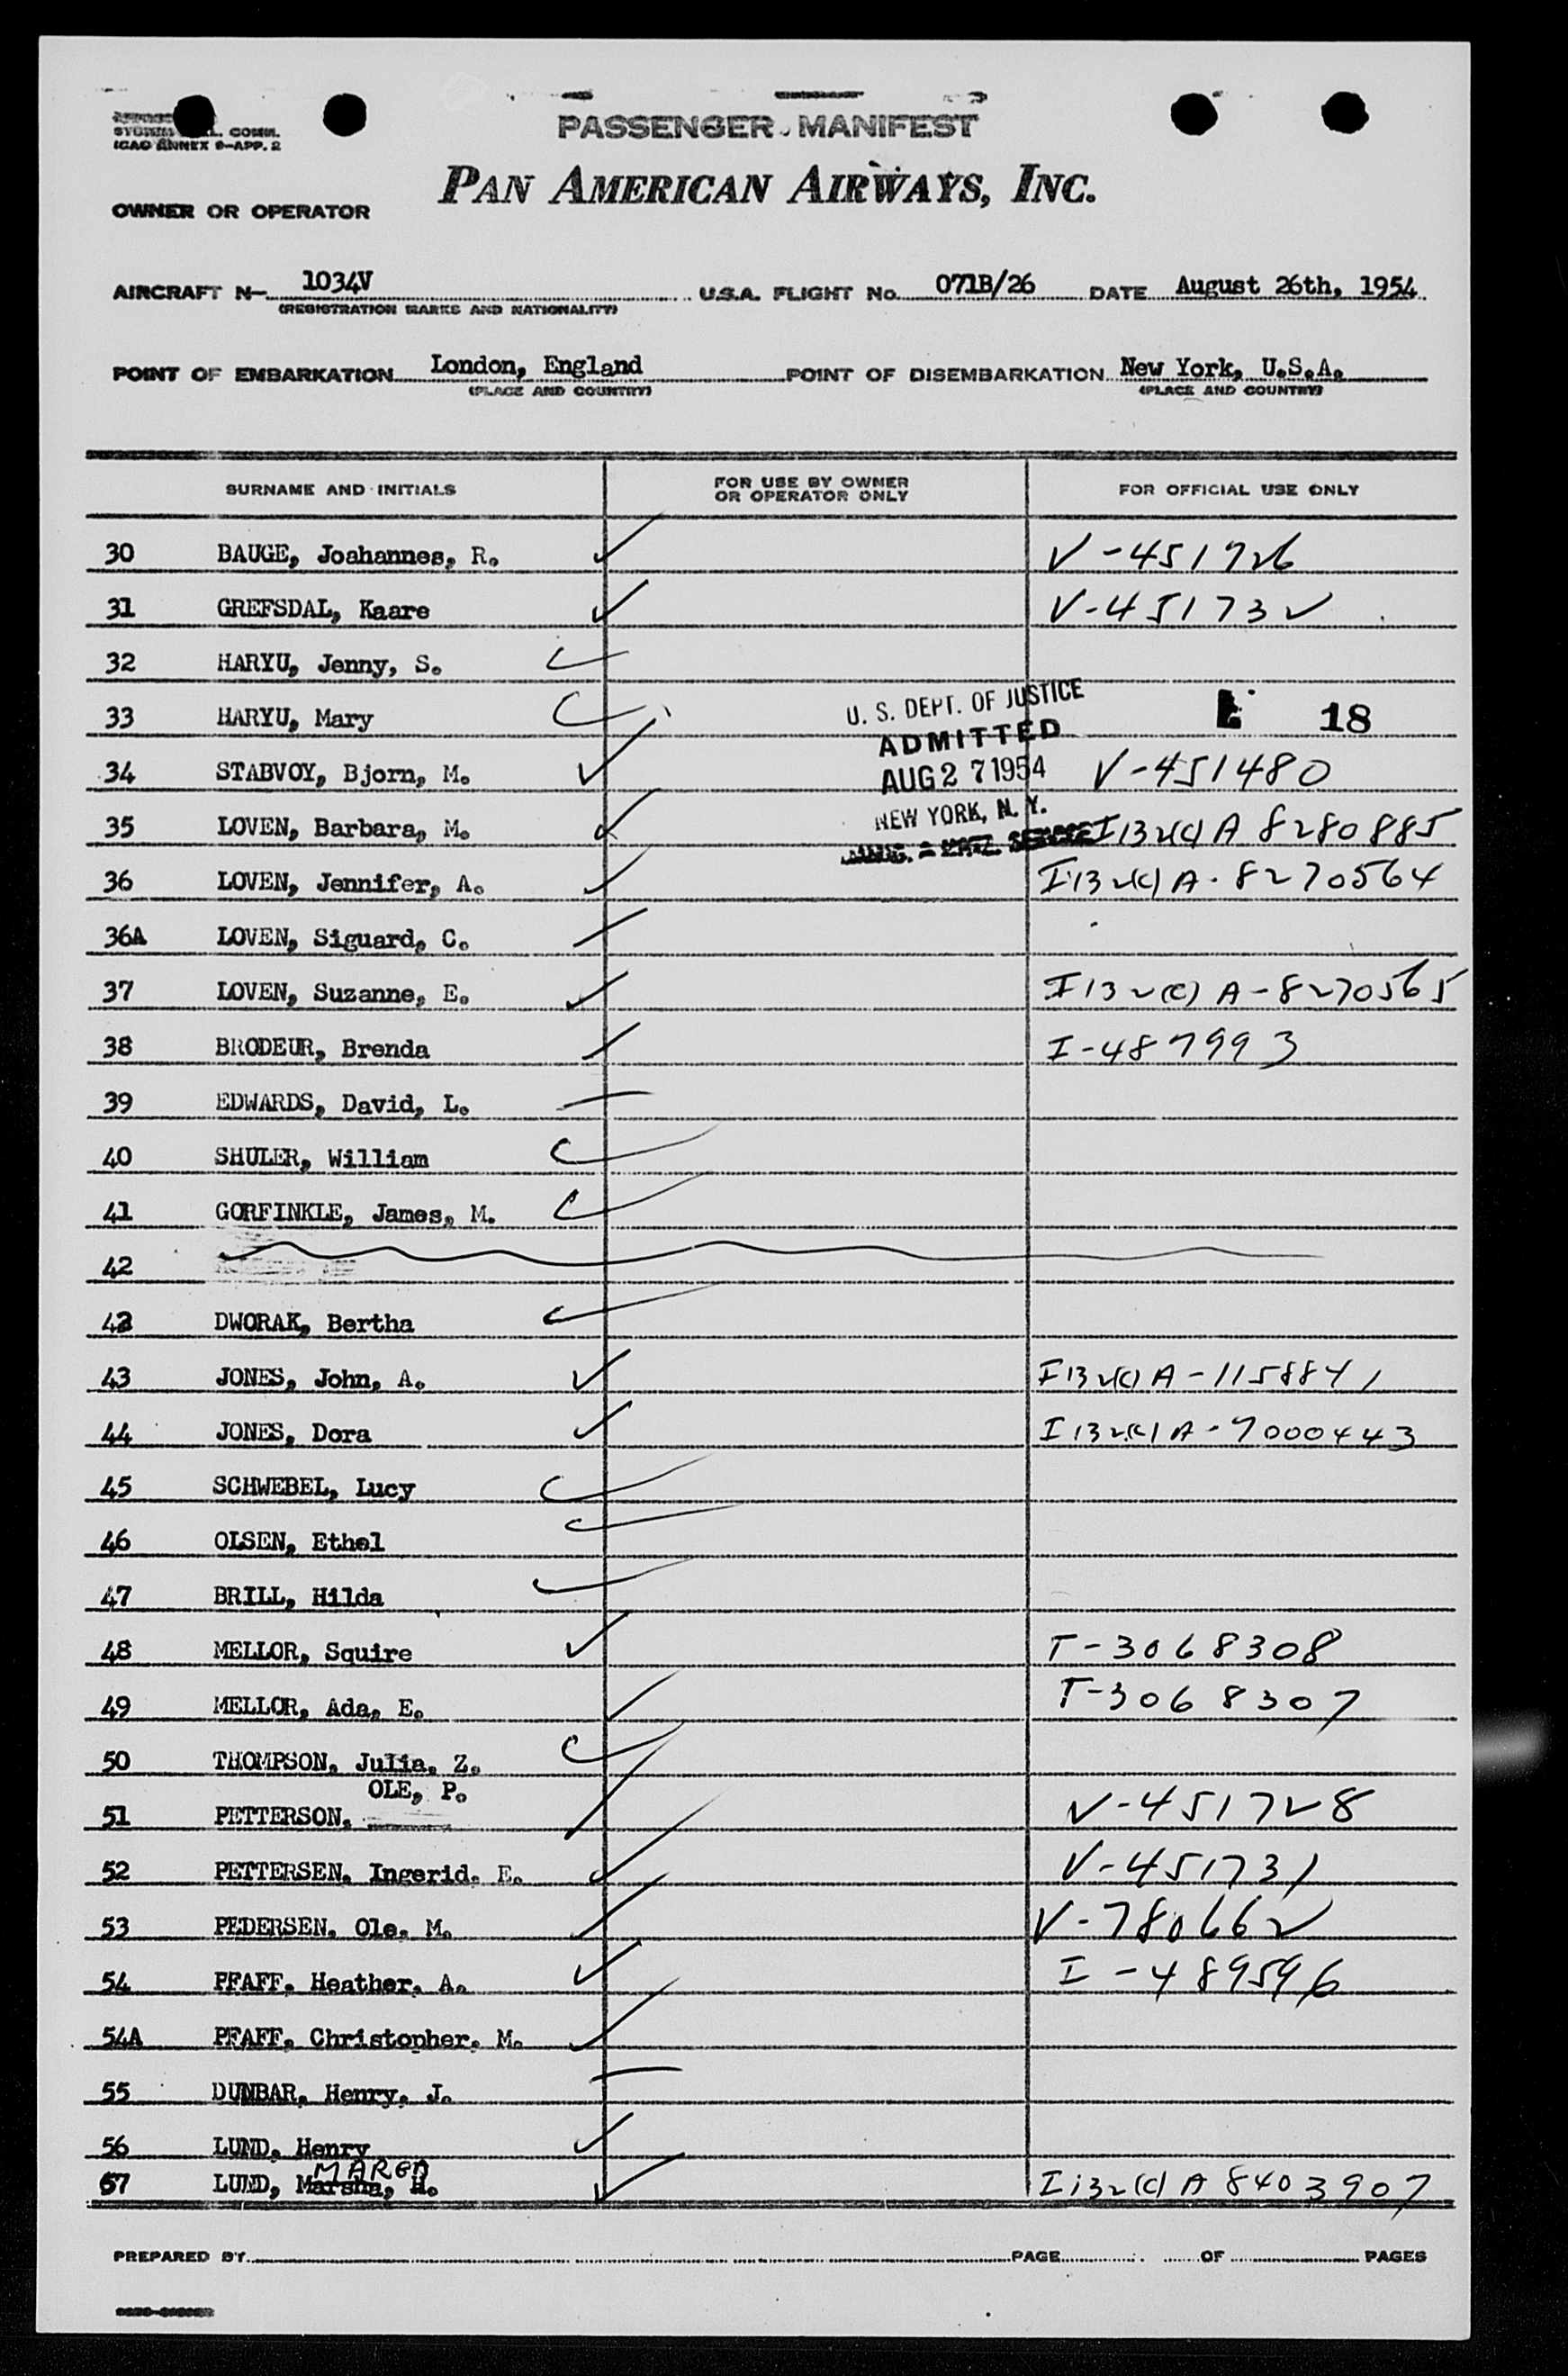 COMM.
ICAO ANNEX 9-APP. 2
PASSENGER MANIFEST
PAN AMERICAN AIRWAYS, INC.
OWNER OR OPERATOR
AIRCRAFT N- 1034V U.S.A. FLIGHT No. 071B/26 DATE August 26th, 1954
(REGISTRATION MARKS AND NATIONALITY)
POINT OF EMBARKATION London, England POINT OF DISEMBARKATION New York, U.S.A.
(PLACE AND COUNTRY) (PLACE AND COUNTRY)
SURNAME AND INITIALS FOR USE BY OWNER OR OPERATOR ONLY FOR OFFICIAL USE ONLY
30 BAUGE, Joahannes, R. V-451726
31 GREFSDAL, Kaare V-451732
32 HARYU, Jenny, S.
33 HARYU, Mary 18
U. S. DEPT. OF JUSTICE
ADMITTED
AUG 27 1954
NEW YORK, N. Y.
34 STABVOY, Bjorn, M. V-451480
35 LOVEN, Barbara, M. I132(c) A 8280885
36 LOVEN, Jennifer, A. I132(c) A-8270564
36A LOVEN, Siguard, C.
37 LOVEN, Suzanne, E. I132(c) A-8270565
38 BRODEUR, Brenda I-487993
39 EDWARDS, David, L.
40 SHULER, William
41 GORFINKLE, James, M.
42
42 DWORAK, Bertha
43 JONES, John, A. I132(c) A-1158841
44 JONES, Dora I132(c) A-7000443
45 SCHWEBEL, Lucy
46 OLSEN, Ethel
47 BRILL, Hilda
48 MELLOR, Squire T-3068308
49 MELLOR, Ada, E. T-3068307
50 THOMPSON, Julia, Z.
OLE, P.
51 PETTERSON, V-451728
52 PETTERSEN, Ingerid, E. V-451731
53 PEDERSEN, Ole, M. V-780662
54 PFAFF, Heather, A. I-489596
54A PFAFF, Christopher, M.
55 DUNBAR, Henry, J.
56 LUND, Henry
MAREN
57 LUND, Marsha, H. I132(c) A 8403907
PREPARED BY PAGE OF PAGES